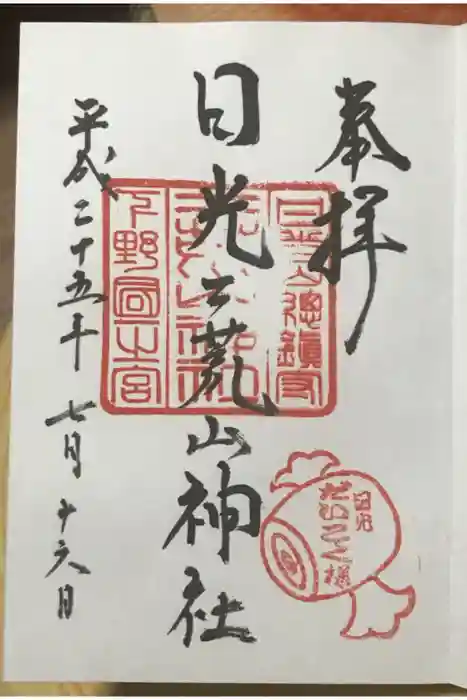 奉拝
日光二荒山神社
平成二十五年七月十六日
日光山總鎮守
下野國一之宮
日光
だいこく様